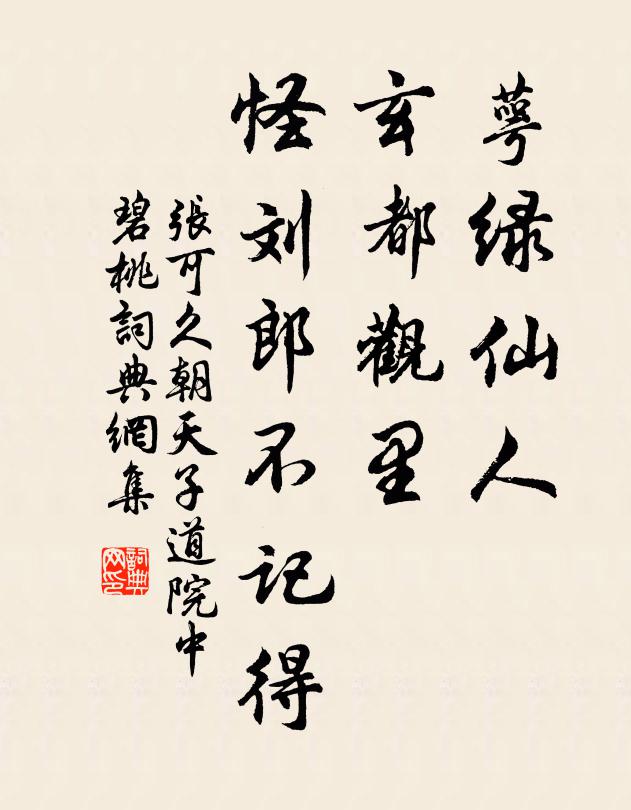 萼绿仙人
玄都觀里
怪刘郎不记得
張可久朝天子道院中
碧桃詞典網集
詞典网印